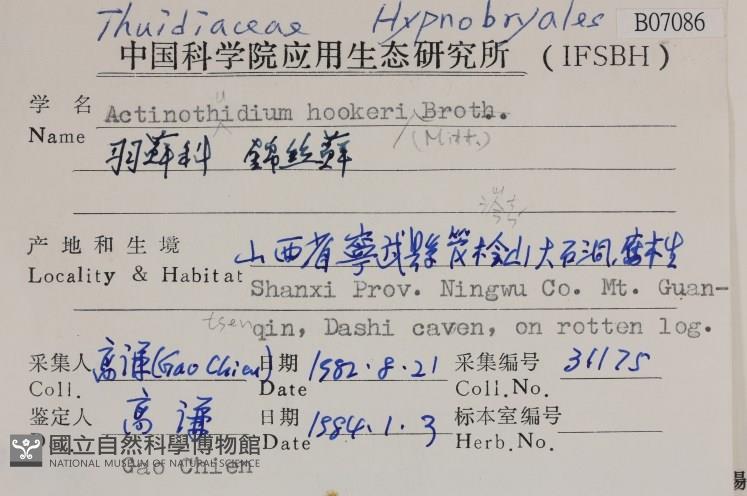 Thuidiaceae Hypnobryales B07086
中国科学院应用生态研究所 (IFSBH)
学名 Actinothidium hookeri Broth.
Name u (Mitt.)
羽蘚科 錦丝蘚
产地和生境 山西省寧武縣管檜山大石洞,腐木生
Locality & Habitat Shanxi Prov. Ningwu Co. Mt. Guan-
tsen qin, Dashi caven, on rotten log.
采集人 高谦(Gao Chien) 日期 1982.8.21 采集编号 36175
Coll. Date Coll.No.
鉴定人 高谦 日期 1984.1.3 标本室编号
Date Herb.No.
國立自然科學博物館
NATIONAL MUSEUM OF NATURAL SCIENCE
Gao Chien